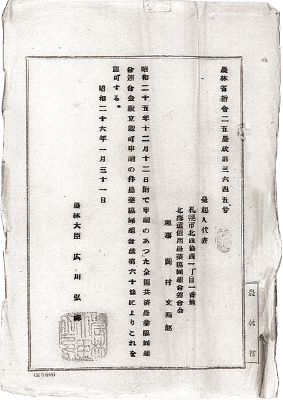 農林省指令二五農政第三六四五号
発起人代表
札幌市北四条西一丁目一番地
北海道信用農業協同組合連合会
理事 岡村文四郎
昭和二十五年十二月十二日附で申請のあつた全国共済農業協同組
合連合会設立認可申請の件農業協同組合法第六十条によりこれを
認可する。
昭和二十六年一月三十一日
農林大臣 広川弘禅
農林省